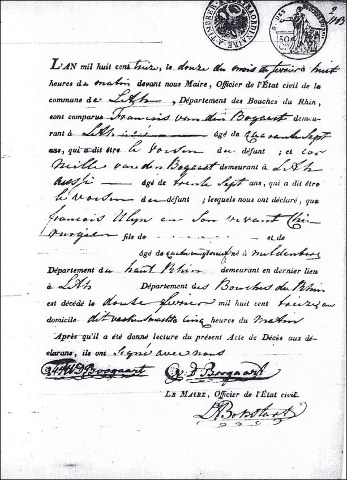 L'AN mil huit cent treize, le douze du mois de fevrier à huit
heures du matin devant nous Maire, Officier de l'État civil de la
commune de Lith, Département des Bouches du Rhin,
sont comparus Francois van den Bogaart demeu-
rant à Lith âgé de quarante sept
ans, qui a dit être le voisin du défunt; et cor
neille van den Bogaart demeurant à Lith
aussi âgé de trente sept ans, qui a dit être
le voisin du défunt; lesquels nous ont déclaré, que
françois Ulyn en son vivant Chi
rurgien fils de et de
âgé de né à muldenberg
Département du haut Rhin demeurant en dernier lieu
à Lith Département des Bouches du Rhin
est décédé le douze fevrier mil huit cent treize en
domicile dit cinq heures du matin
Après qu'il a été donné lecture du présent Acte de Décès aux dé-
clarans, ils ont signé avec nous
VD Boogaart D Boogaart
LE MAIRE, Officier de l'État civil.